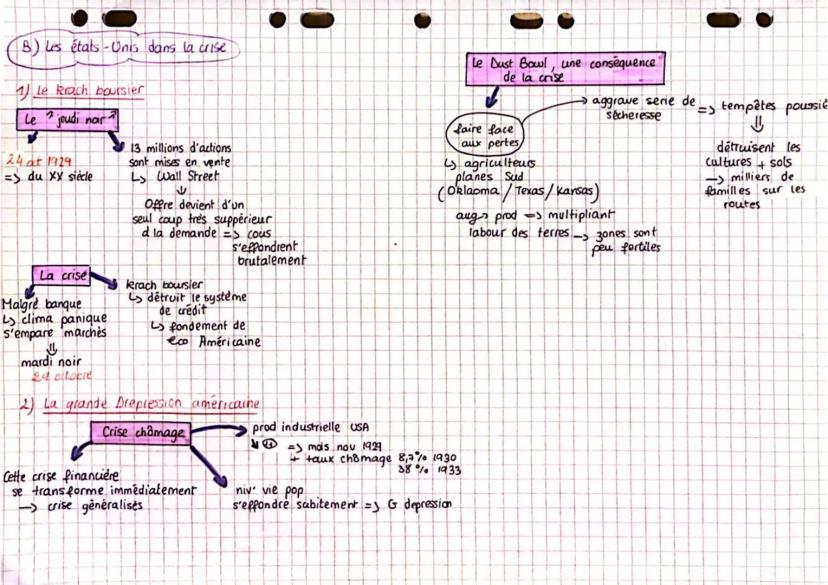 B) Les états-Unis dans la crise
1) Le krach boursier
Le "jeudi noir"
24 oct 1929
=> du XX siècle
13 millions d'actions
sont mises en vente
↳ Wall Street
↓
Offre devient d'un
seul coup très supérieur
à la demande => cous
s'effondrent
brutalement
La crise
Malgré banque
↳ clima panique
s'empare marchés
⇓
mardi noir
29 octobre
krach boursier
↳ détruit le système
de crédit
↳ fondement de
eco Américaine
2) La grande Drepression américaine
Crise chômage
prod industrielle USA
=> mois nov 1929
+ taux chômage 8,7% 1930
38% 1933
Cette crise financière
se transforme immédiatement
→ crise généralisés
niv' vie pop
s'effondre subitement => G depression
Le Dust Bowl, une conséquence
de la crise
faire face
aux pertes
→ aggrave serie de
sécheresse
=> tempêtes poussiè
⇓
détruisent les
cultures + sols
→ milliers de
familles sur les
routes
↳ agriculteurs
planes Sud
(Oklaoma / Texas / Kansas)
aug> prod => multipliant
labour des terres → zones sont
peu fertiles